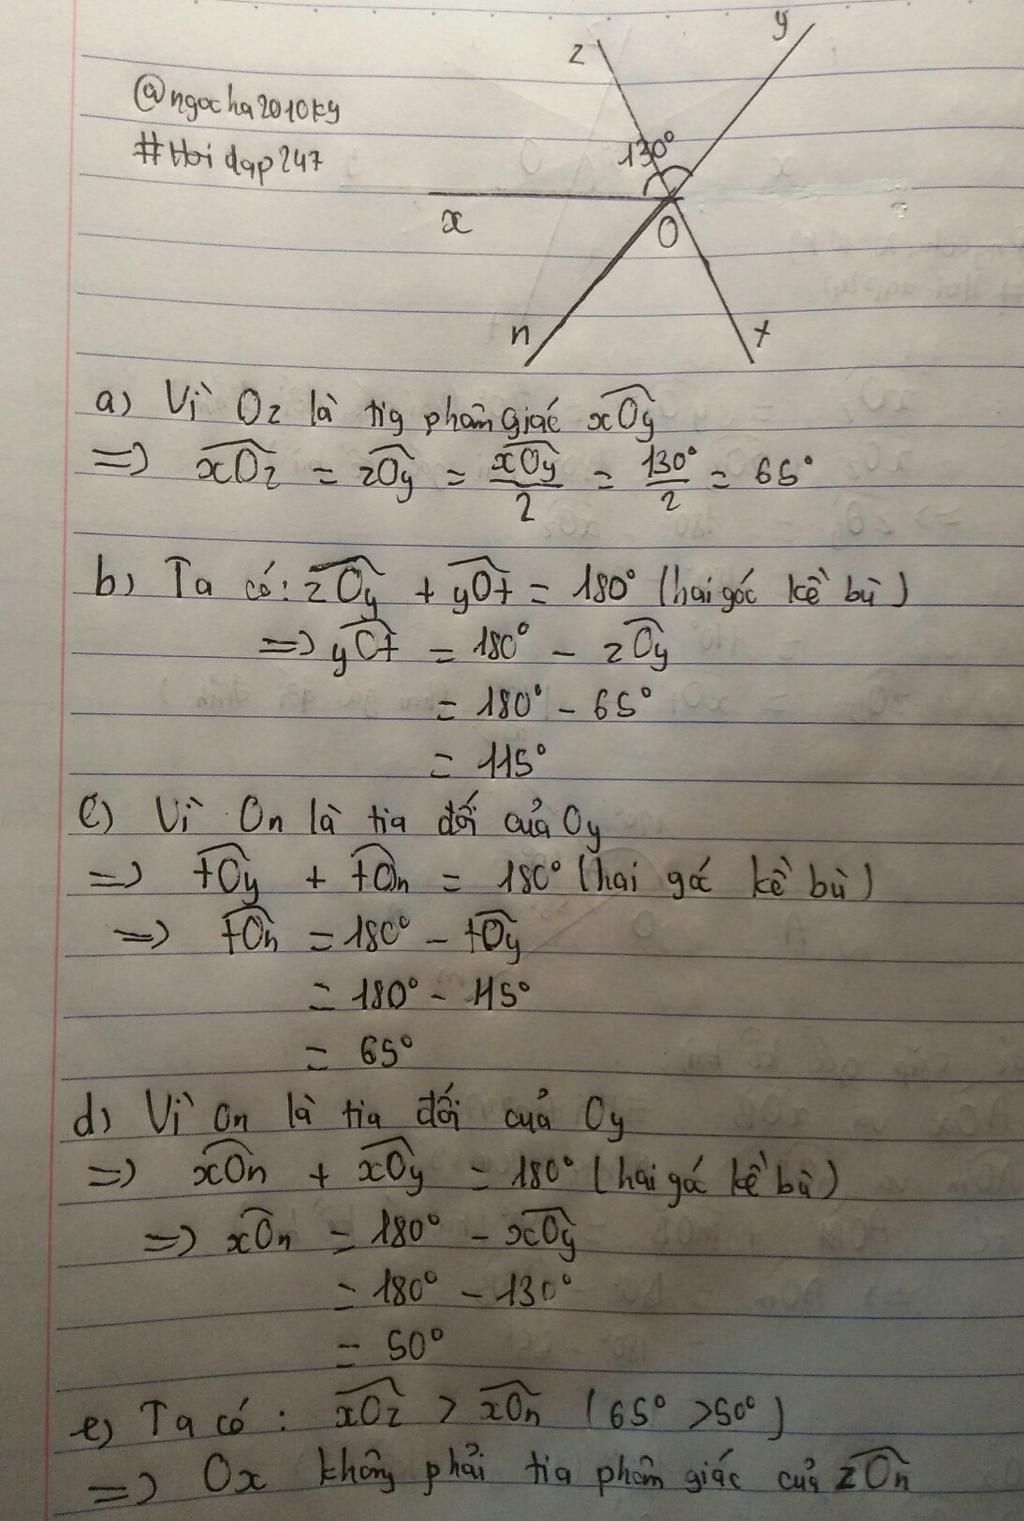 @ngocha2010kg
#Hoidap247
z
y
130°
x
O
n
t
a) Vì Oz là tia phân giác xOy
=> xOz = zOy = xOy/2 = 130°/2 = 65°
b) Ta có: zOy + yOt = 180° (hai góc kề bù)
=> yOt = 180° - zOy
= 180° - 65°
= 115°
c) Vì On là tia đối của Oy
=> tOy + tOn = 180° (hai góc kề bù)
=> tOn = 180° - tOy
= 180° - 115°
= 65°
d) Vì On là tia đối của Oy
=> xOn + xOy = 180° (hai góc kề bù)
=> xOn = 180° - xOy
= 180° - 130°
= 50°
e) Ta có: xOz > xOn (65° > 50°)
=> Ox không phải tia phân giác của zOn